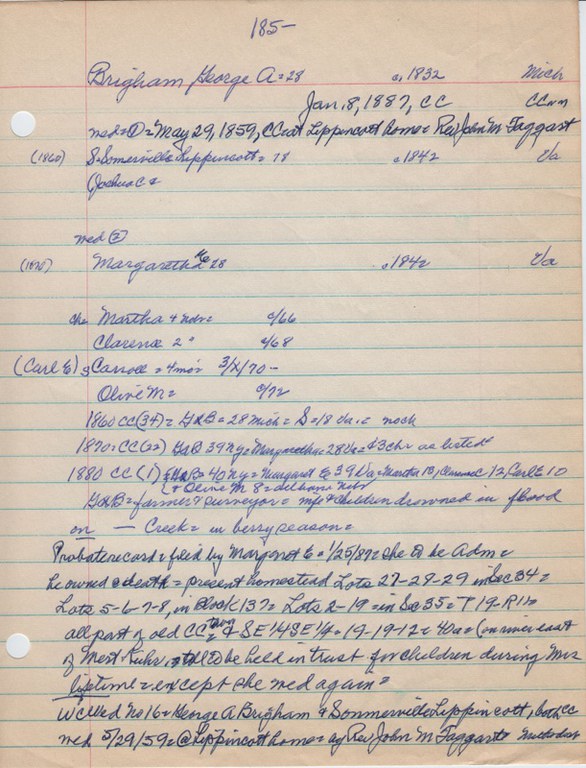 185-
Brigham, George A = 28 c. 1832 Mich
Jan. 8, 1887, CC CC
med = ① = May 29, 1859, CC at Lippincott home = Rev John M Taggart
(1860) S = Somerville Lippincott = 18 c 1842 Va
Joshua C =
med ②
(1870) Margaretha 28 c. 1842 Va
ch = Martha 4 Nebr = c/66
Clarence 2 " c/68
(Carl E) 3 Carroll = 4 mos 3/X/70 -
Olive M = c/72
1860 CC (34) = GAB = 28 Mich = S = 18 Va. = no ch
1870 = CC (22) GAB 39 NY = Margaretha = 28 Va = $3 chr as listed
1880 CC (1) = GAB = 40 NY = Margaret E 39 Va = Martha 13, Clarence C 12, Carl E 10
(+ Olive M 8 = all born Nebr
GAB = farmer & surveyor = wife & children drowned in flood
on — Creek = in berry season =
Probate record = filed by Margaret E = 1/25/87 = she to be Adm =
he owned @ death = present homestead Lots 27-28-29 in Sec 34 =
Lots 5-6-7-8, in Block 137 = Lots 2-19 = in Sec 35 = T 19-R 11 =
all part of old CC = & SE 1/4 SE 1/4 = 19-19-12 = 40a = (on river east
of to be held in trust for children during Mrs
lifetime = except she med again =
WC Wed No 16 = George A Brigham & Sommerville Lippincott, both CC
med 5/29/59 = @ Lippincott home = by Rev John M Taggart = Methodist